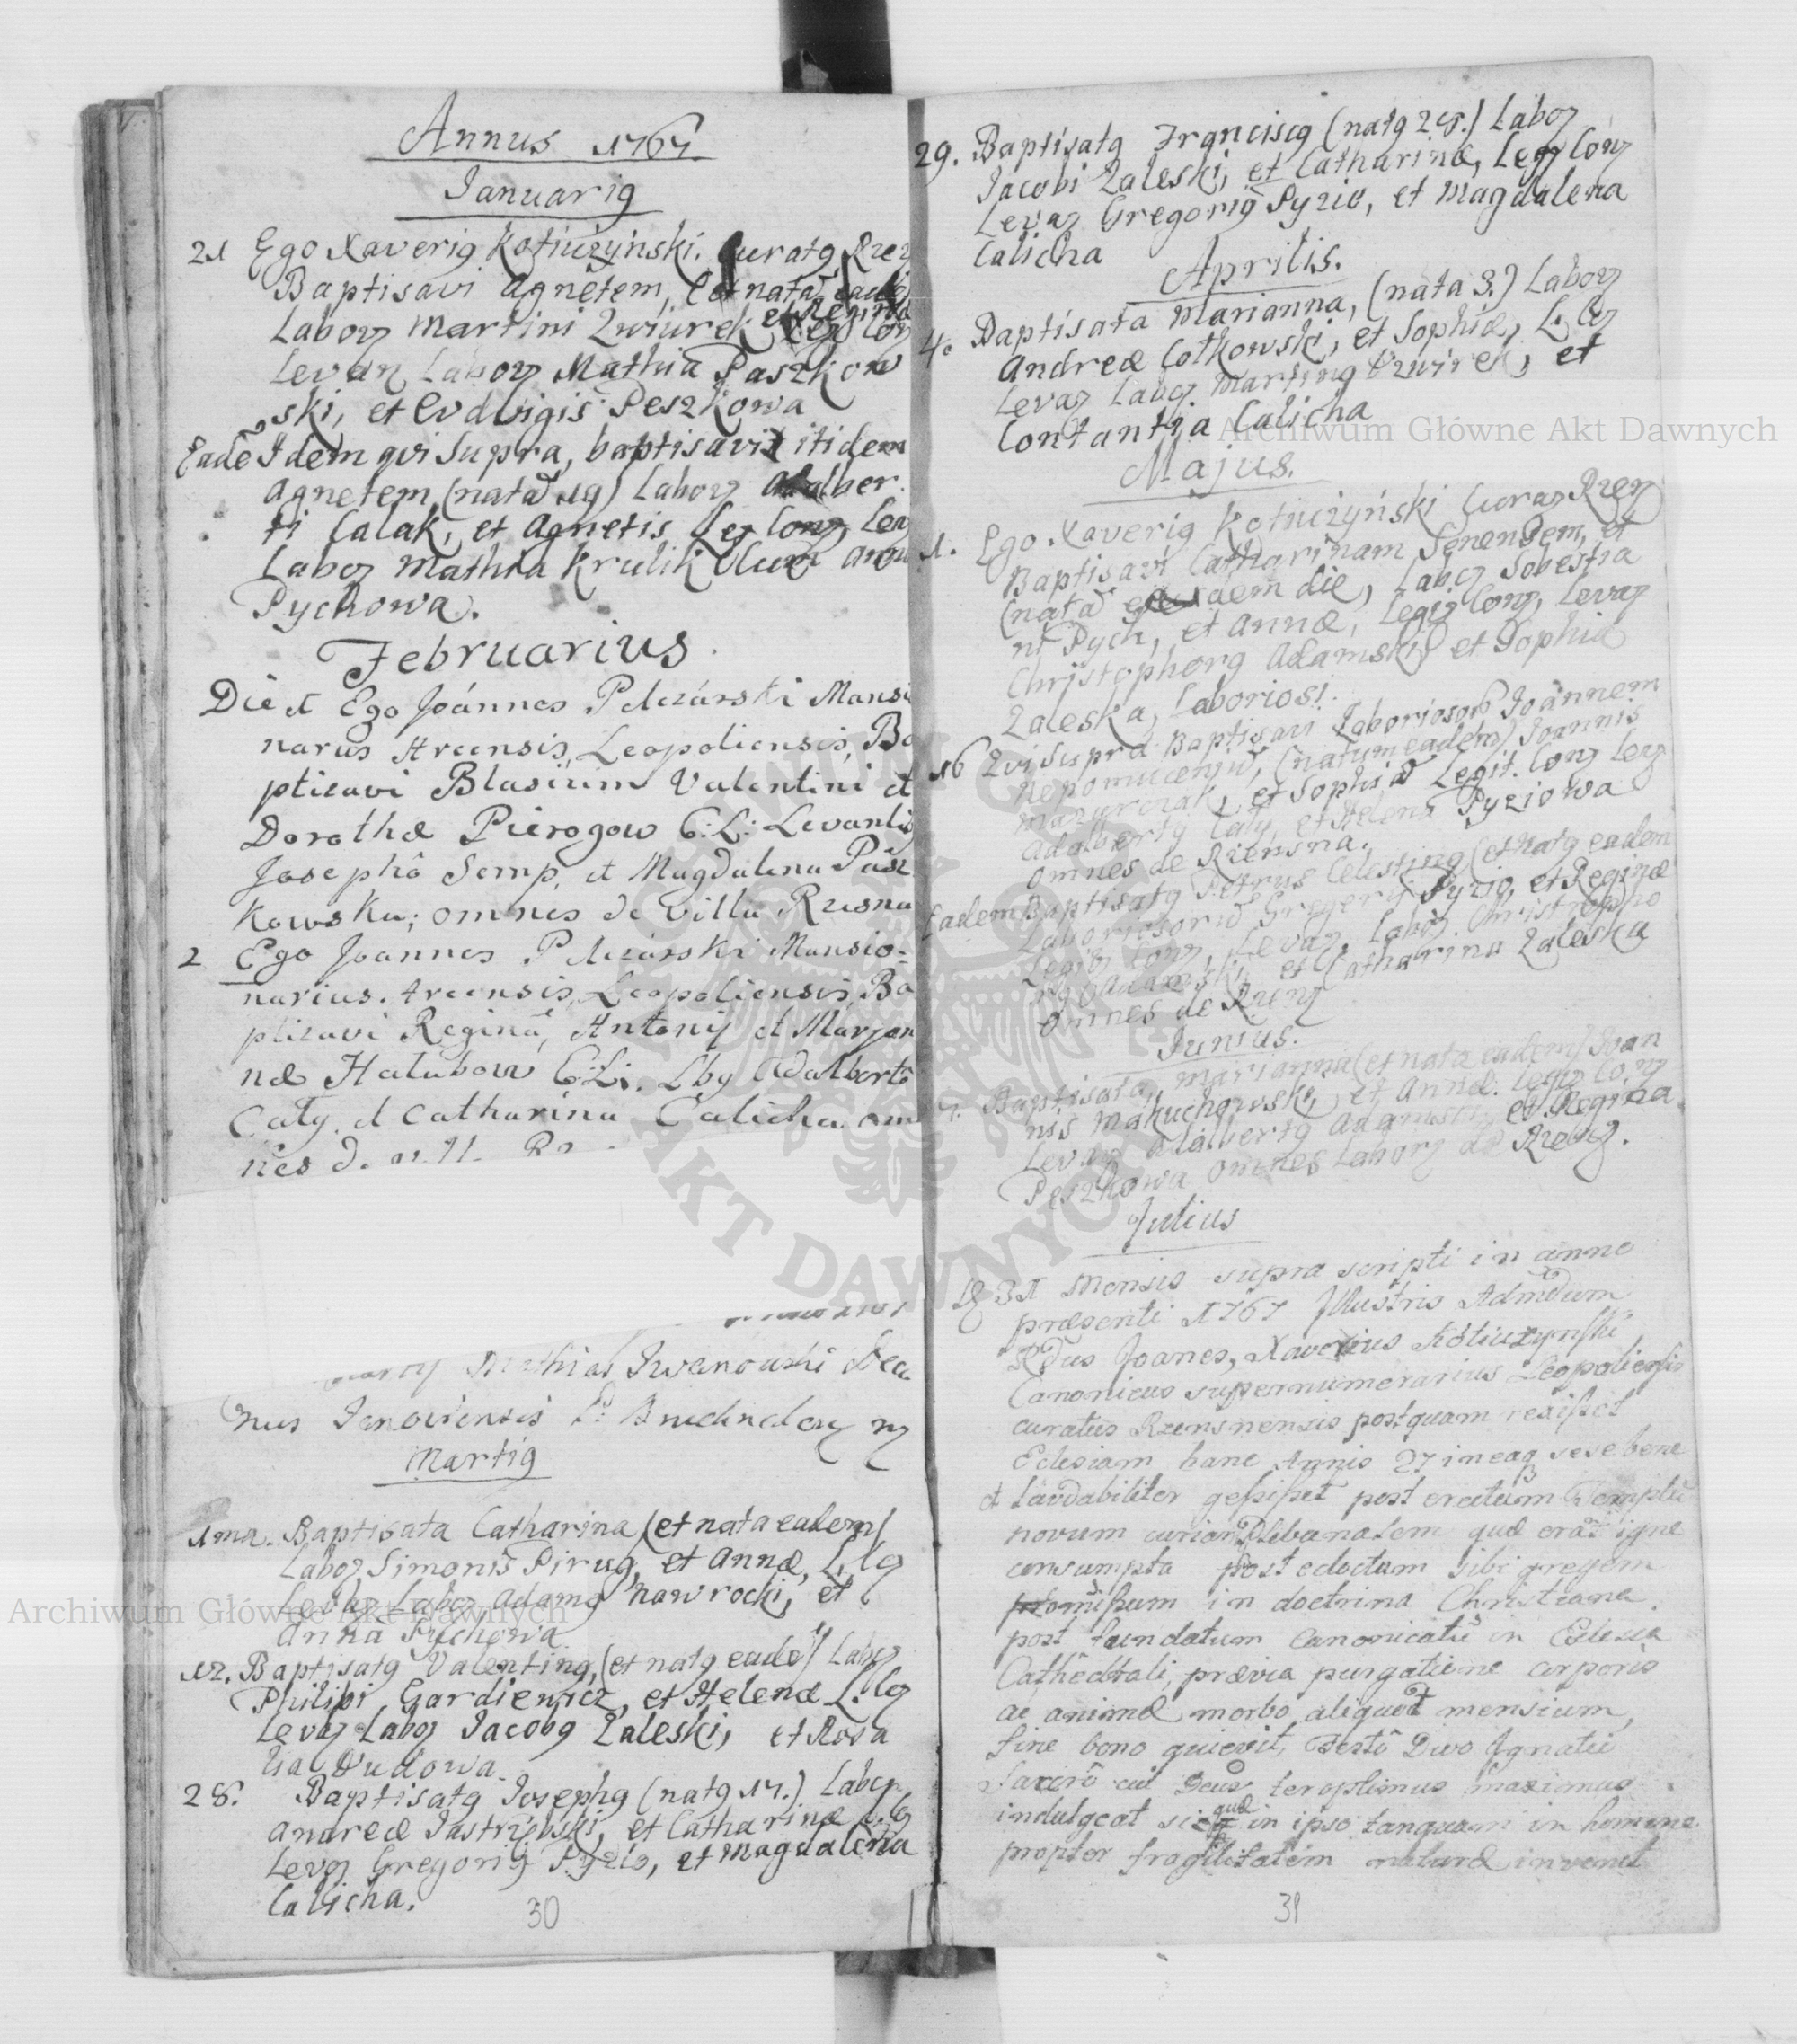 Annus 1767
Januarig
21 Ego Xaverig Kotiużyński. Curatg Rzez
Baptisavi Agnetem, natã
Laboz Martini Zwiurek et Regina
Levan Laboz Mathia Paszkow
ski, et Evdvigis Peszkowa
Eadẽ Idem qvi Supra, baptisavit itidem
Agnetem (natã 19) Laboz Adalber
ti Calak, et Agnetis Leg Conz Lev
Laboz Mathia Krulik
Pychowa.
Februarius
Die 1 Ego Joánnes Pelczárski Mansi
narus Arcensis, Leopoliensis, Ba
ptizavi Blasium Valentini et
Dorothæ Pierogow C: L: Levantig
Josephô Semp, et Magdalena Pasz
kowska; omnes de Villa Rzesna
2 Ego Joannes Pelczárski Mansio=
narius. Arcensis, Leopoliensis, Ba
ptizavi Reginã, Antonij et Maryan
næ Hałubow C: L:. Lbg Adalbertô
Cały, et Catharina Calicha om
nes
Mathias Iwanowski Deca
nus Janoviensis
Martig
1ma. Baptisata Catharina (et nata eadem)
Laboz Simonis Pirug, et Annæ, L. Cz
Levaz Laboz Adamg Nawrocki, et
Anna Pychowa
12. Baptisatg Valenting, (et natg eadẽ) Laboz
Philipi Gardiewicz, et Helenæ L: Cz
Levaz Laboz Jacobg Zaleski, et Rosa
lia Dudowa
28. Baptisatg Josephg (natg 17.) Laboz
Andreæ Jastrzębski, et Catharinæ L. Cz
Levaz Gregorig Pyzio, et Magdalena
Calicha.
30
29. Baptisatg Franciscg (natg 28.) Laboz
Jacobi Zaleski, et Catharinæ, Legz Conz
Levaz Gregorig Pyzio, et Magdalena
Calicha
Aprilis.
4. Baptisata Marianna, (nata 3.) Laboz
Andreæ Cotkowski, et Sophiæ, L. Cz
Levaz Laboz. Marting Dzwirek, et
Contantia Calicha
Majus.
1. Ego Xaverig Kotiużyński Curaz Rzez
Baptisavi Catharinam Senensem, et
(natã eadem die, Laboz Sobestia
ni Pych, et Annæ, Legiz Conz, Levaz
Christophorg Adamski, et Sophia
Zaleska, Laboriosi.
16 Qvi Supra Baptisavi Laboriosoz Joannem
Nepomucenũ, (natum eadem) Joannis
Mazurczak, et Sophiæ Legit. Conz Lez
Adalbertg Cały, et Helena Pyziowa
omnes de Rzensna.
Eadem Baptisatg Petrus Celesting (et natg eadem
Laboriosorũ Gregorij Pyzio, et Reginæ
Legiz Conz, Levaz Laboz Christopho
rg Adamski, et Catharina Zaleska
omnes de Rzenz
Junius.
Baptisata, Marianna (et nata eadem) Joan
nis Makuchowski, et Annæ. Legz Conz
Levaz Adalbertg Adamski, et Regina
Peszkowa omnes Laborz de Rzenz.
Julius
31 Mensis supra scripti in anno
præsenti 1767 Illustris Admdum
Rdus Joanes, Xaverius Kotiużynski
Canonicus supernumerarius Leopoliensis
curatus Rzensnensis postquam rexisset
Eclesiam hanc Annis 27 in eaq sese bene
et laudabiliter gessisset post erectum Templũ
novum curiam Plebanalem quæ erat igne
consumpta post edoctum sibi gregem
in doctrina Christiana.
post fundatum Canonicatũ in Eclesia
Cathedrali, prævia purgatione corporis
ac animæ morbo aliquot mensium,
fine bono quievit, Festô Divo Ignatii
Sacrô cui Deus ter optimus maximus
indulgeat si quæ in ipso tanquam in homine
propter fragilitatem naturæ invenit
31
Archiwum Główne Akt Dawnych
Archiwum Główne Akt Dawnych
ARCHIWUM GŁÓWNE AKT DAWNYCH